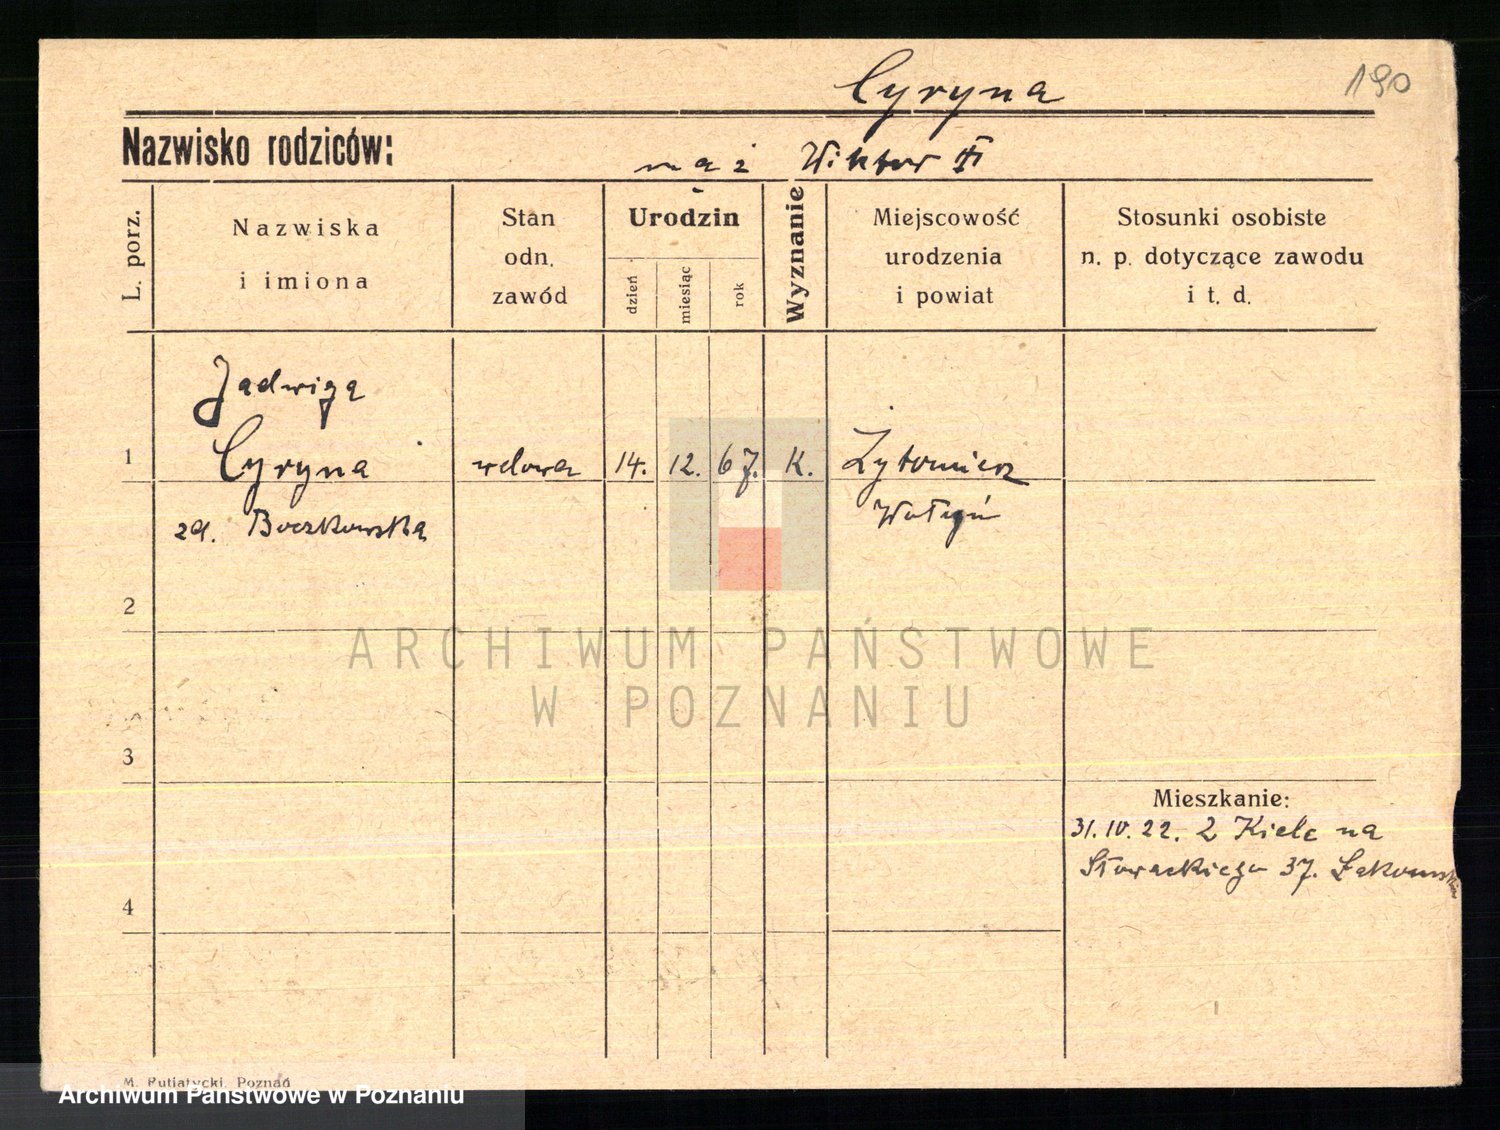 Cyryna
190
Nazwisko rodziców:
mąż Wiktor
L. porz.
Nazwiska
i imiona
Stan
odn.
zawód
Urodzin
dzień
miesiąc
rok
Wyznanie
Miejscowość
urodzenia
i powiat
Stosunki osobiste
n. p. dotyczące zawodu
i t. d.
Jadwiga
1 Cyryna wdowa 14. 12. 67. K. Żytomierz
zd. Boczkowska Wołyń
2
ARCHIWUM PAŃSTWOWE
W POZNANIU
3
Mieszkanie:
31.10.22. Z Kielc na
Słowackiego 37.
4
M. Putiatycki, Poznań
Archiwum Państwowe w Poznaniu